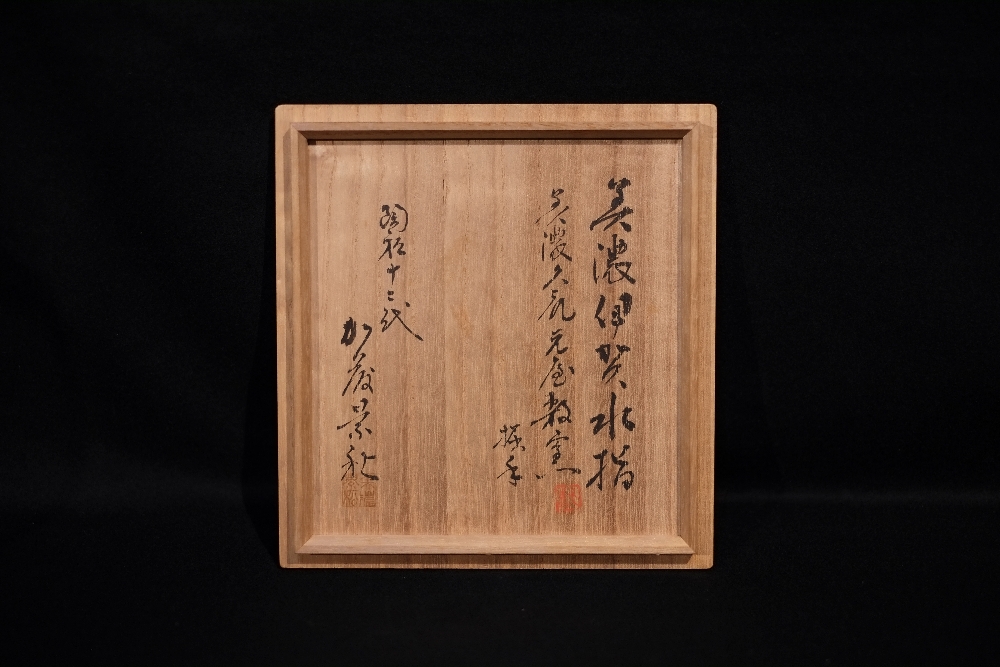 美濃伊賀水指
美濃久尻元屋敷窯
陶祖十二代
加藤景秋